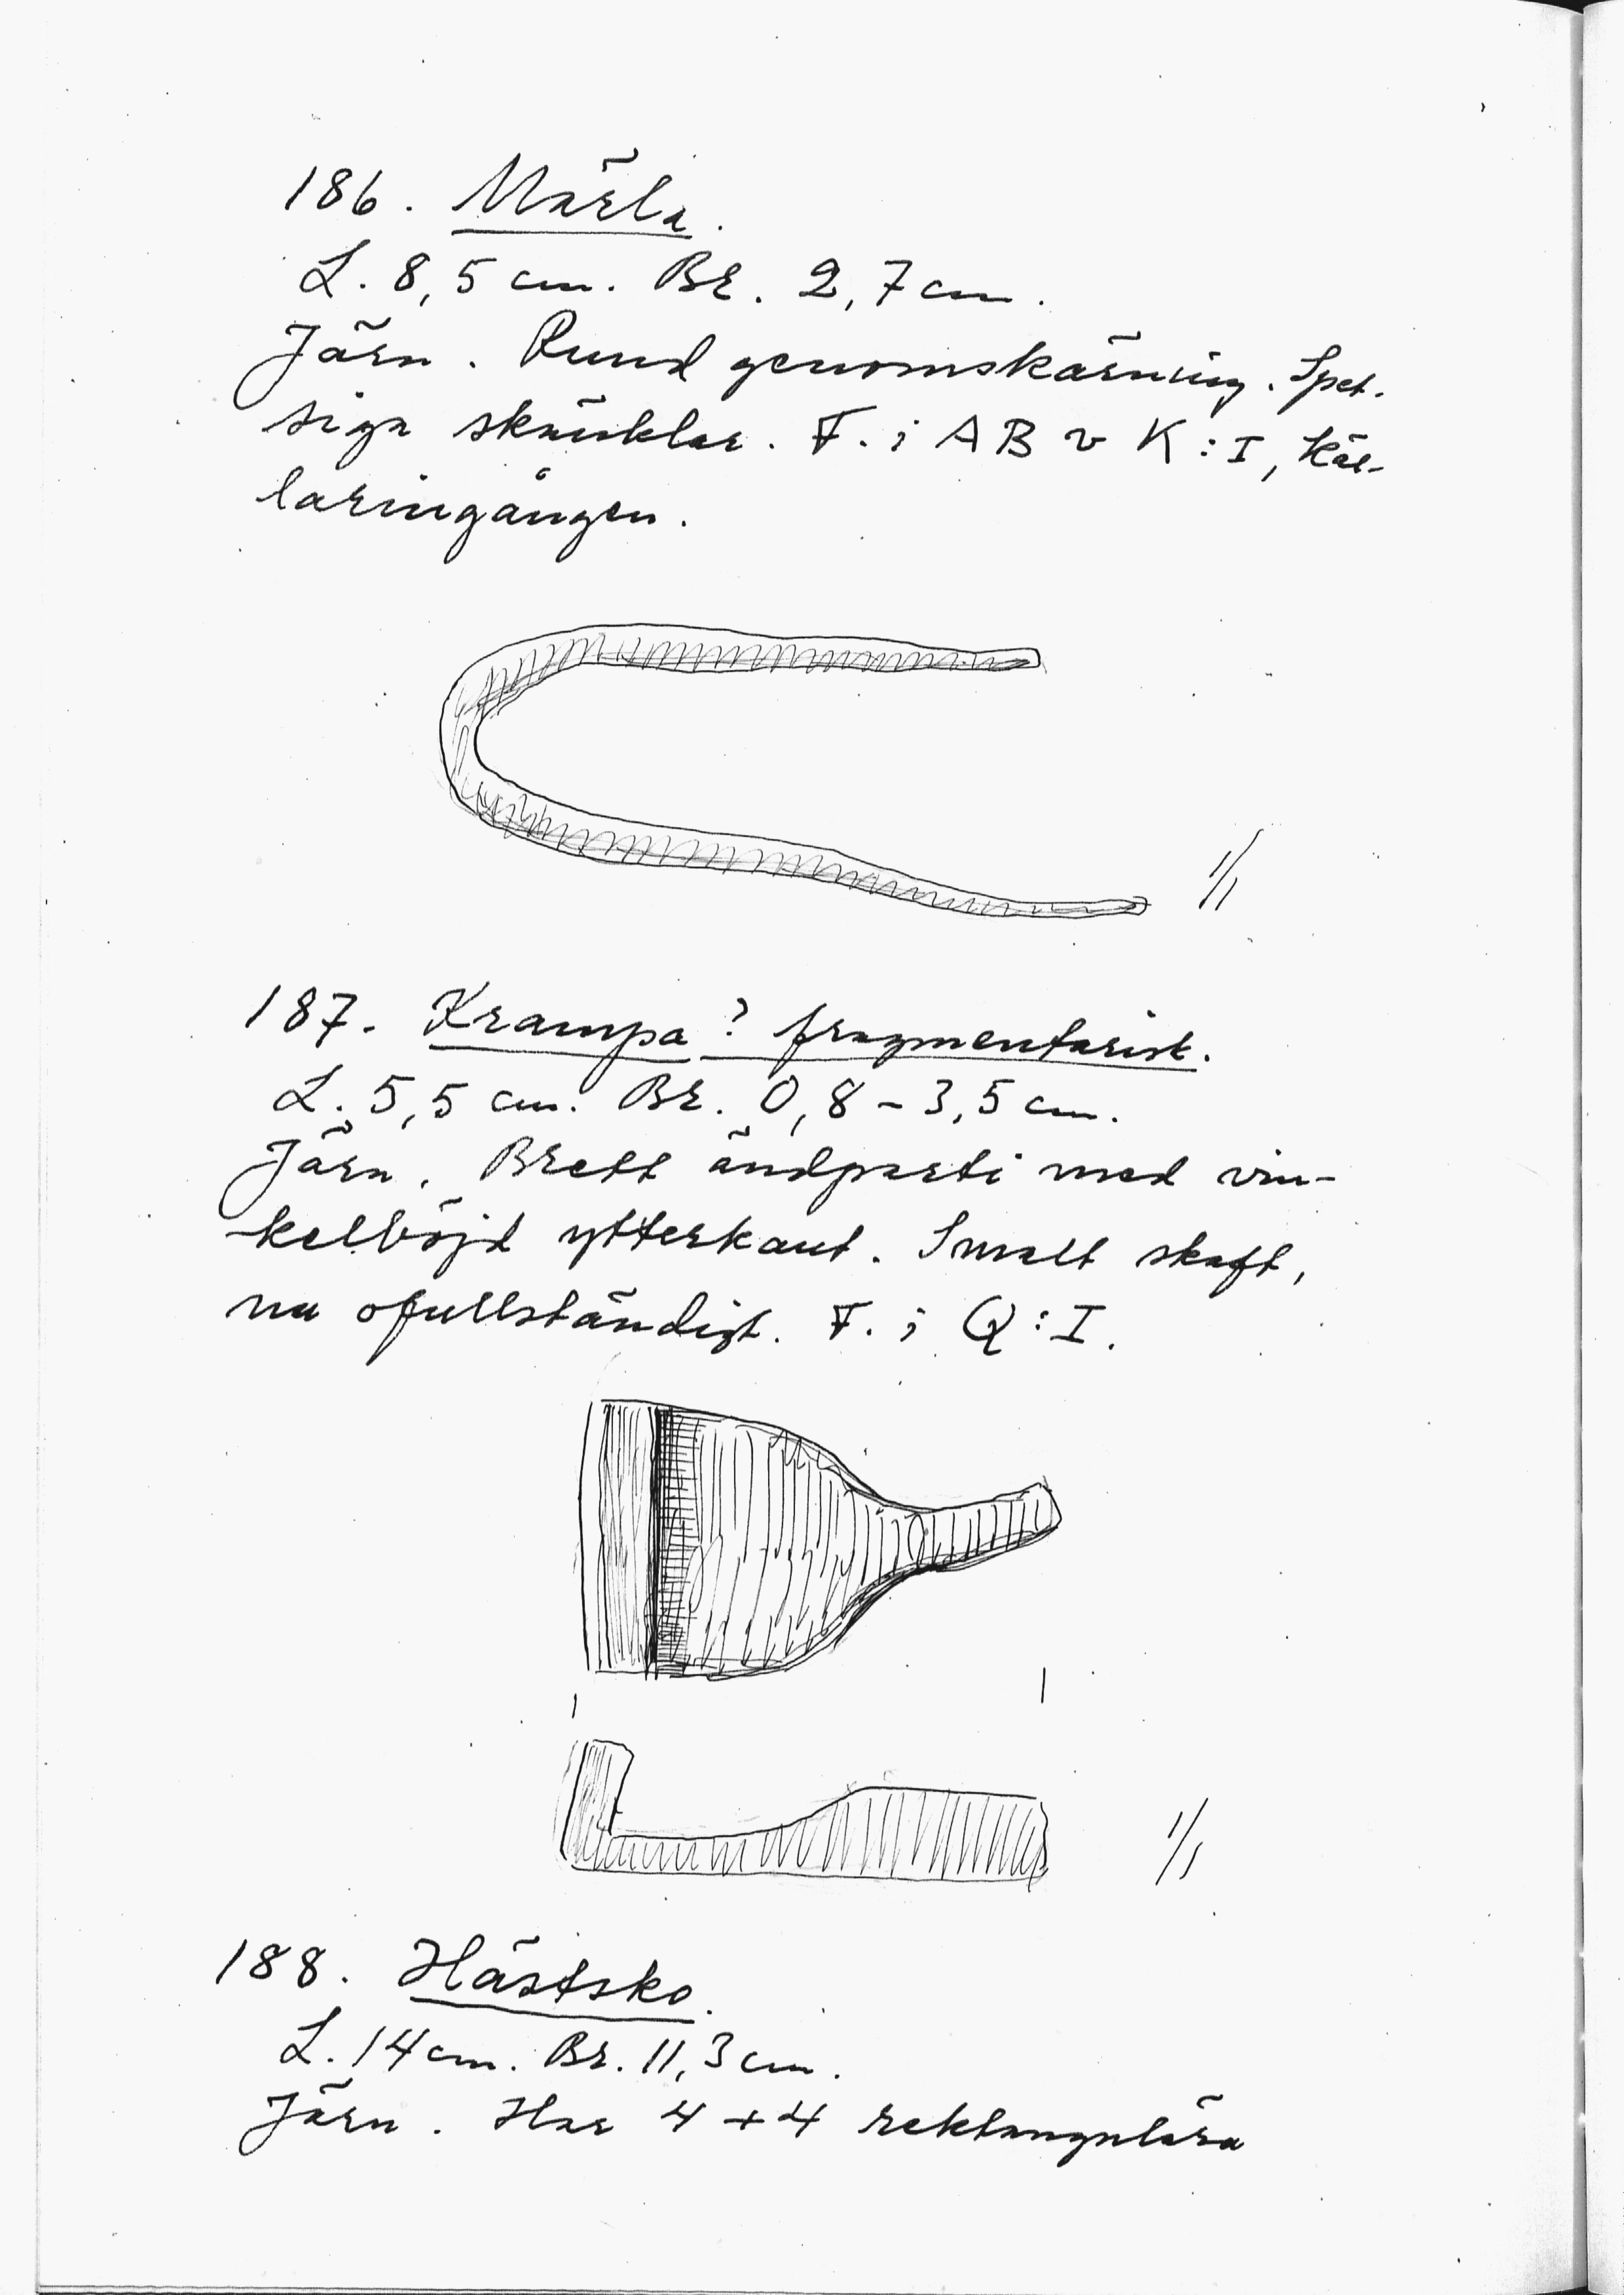 186. Märla.
L. 8,5 cm. Br. 2,7 cm.
Järn. Rund genomskärning. Spet-
siga skänklar. F. i AB v K:I, käl-
laringången.
1/1
187. Krampa? fragmentarisk.
L. 5,5 cm. Br. 0,8-3,5 cm.
Järn. Brett ändparti med vin-
kelböjd ytterkant. Smalt skaft,
nu ofullständigt. F. i Q:I.
1/1
188. Hästsko.
L. 14 cm. Br. 11,3 cm.
Järn. Har 4+4 rektangulära